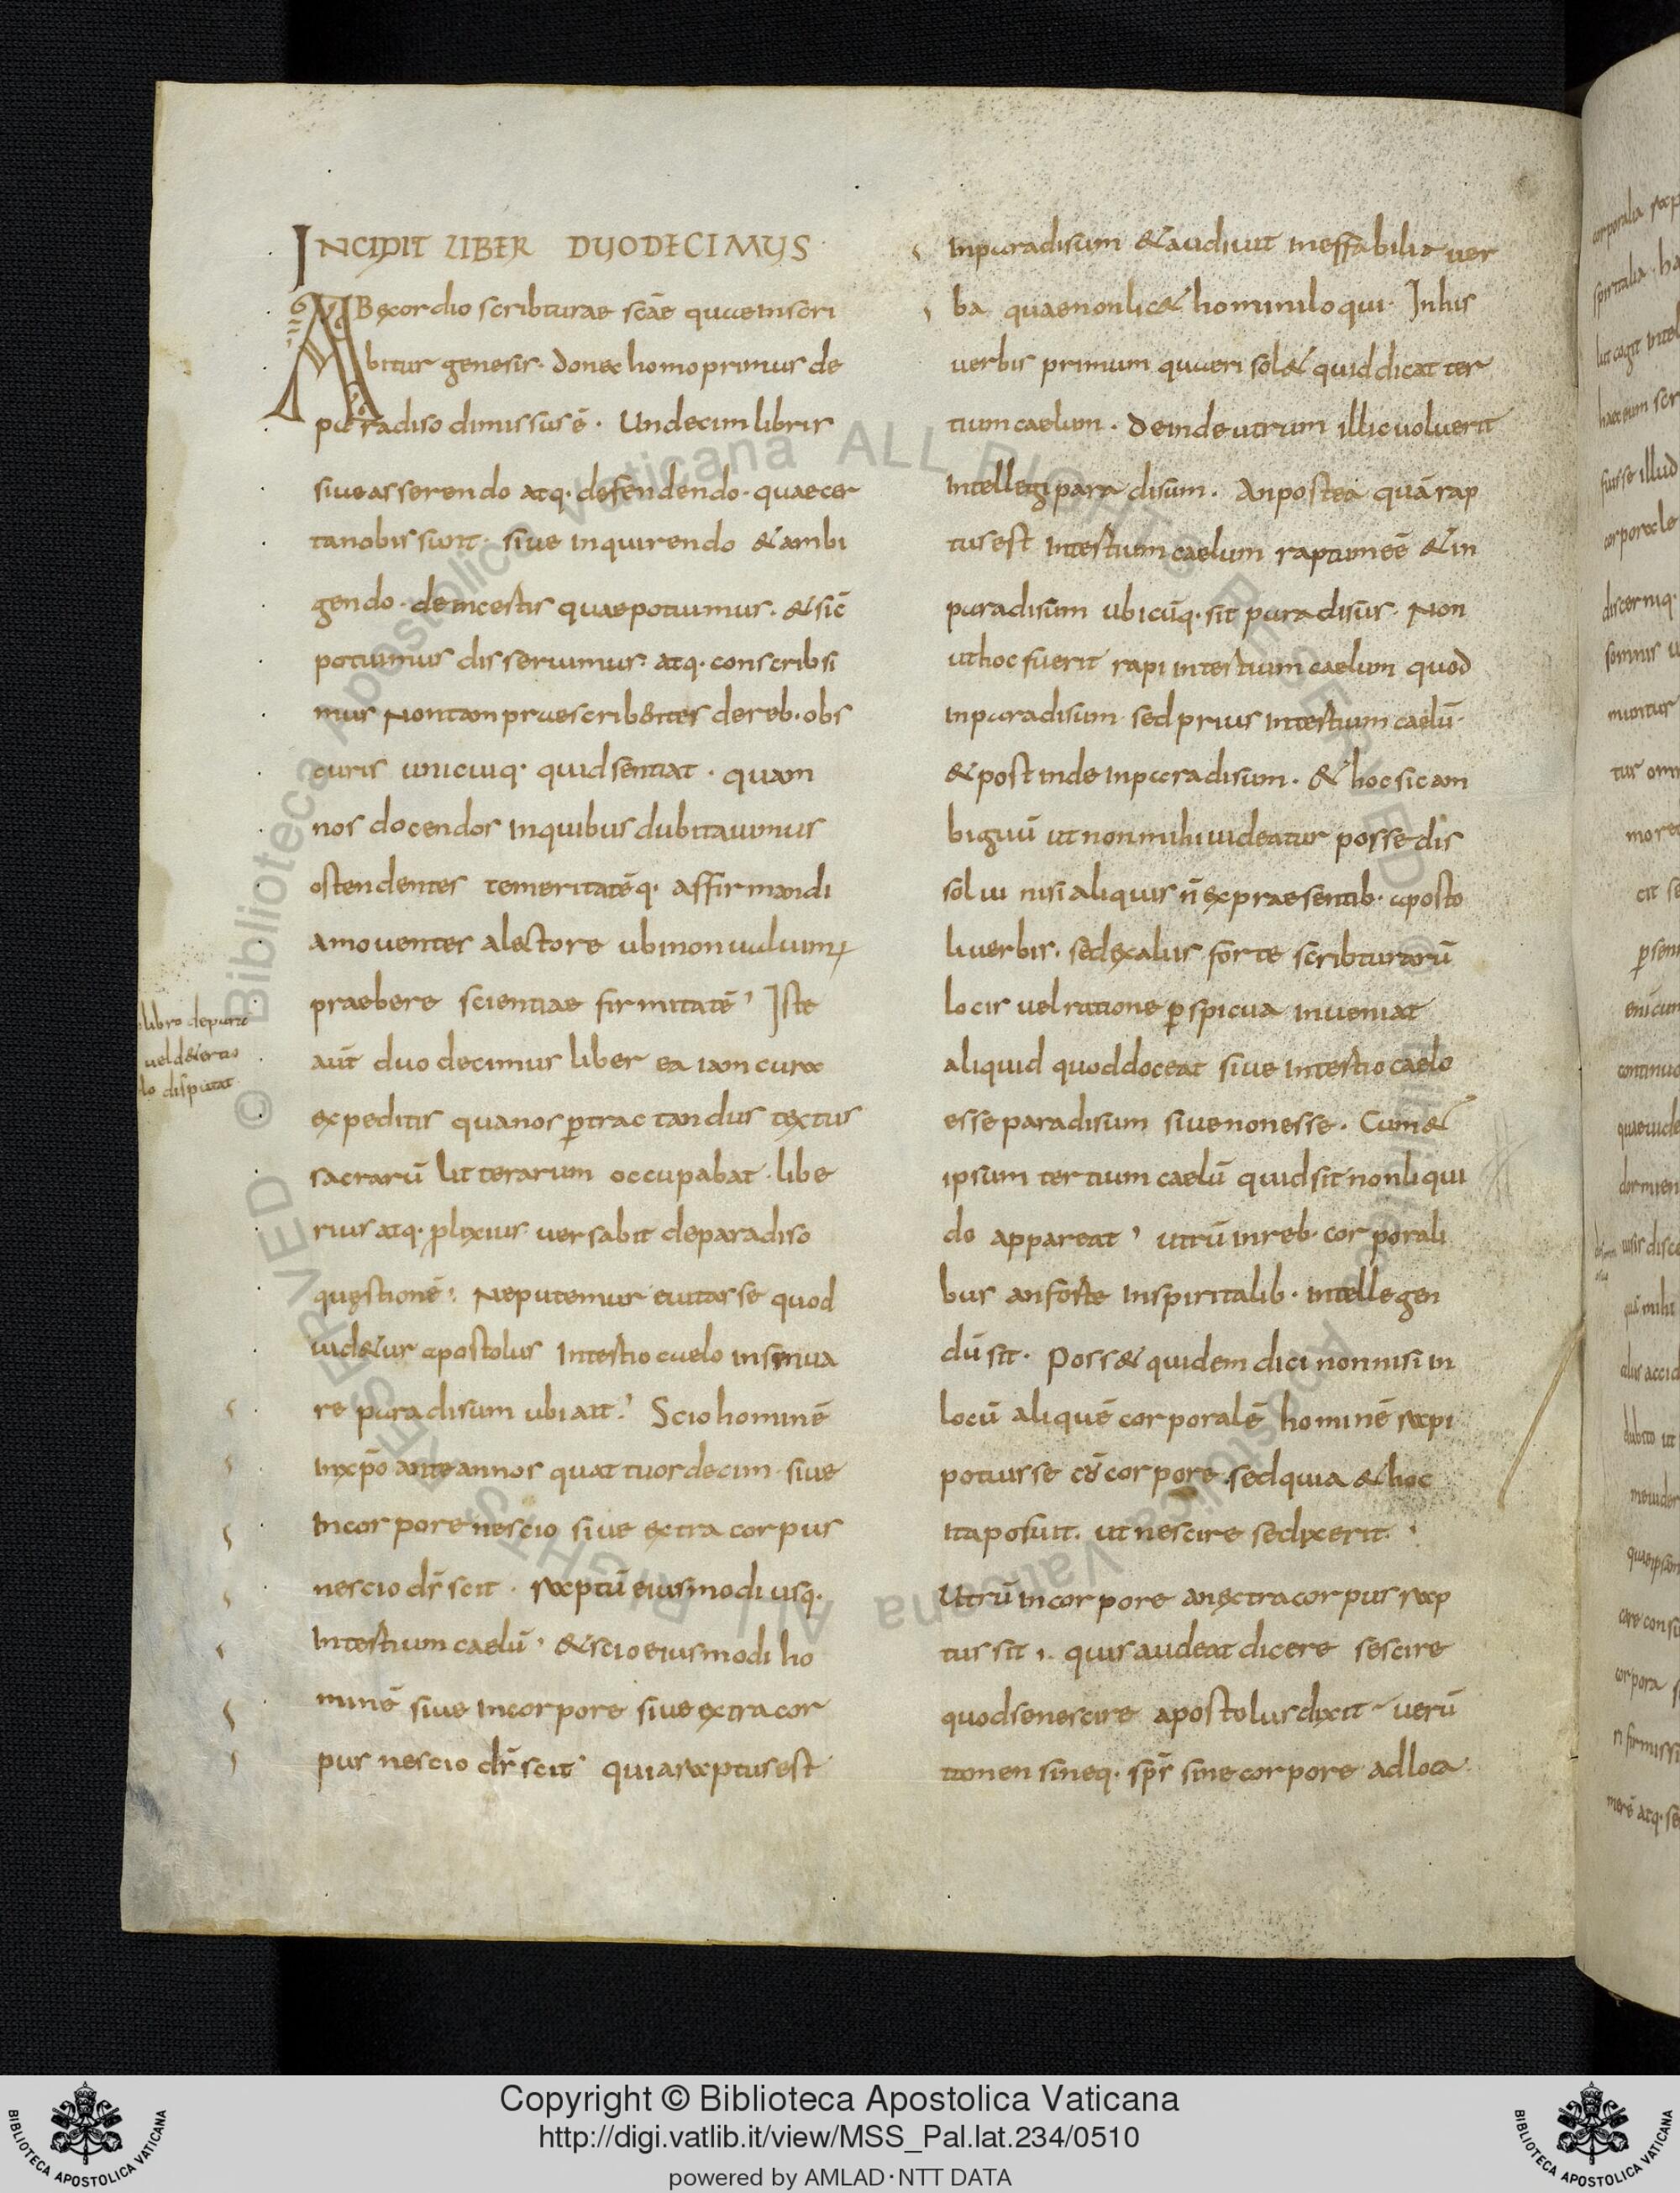 INCIPIT LIBER DUODECIMUS
AB exordio scribturae scāe quae inscri
bitur genesis. donec homo primus de
paradiso dimissus ē. Undecim libris
sive asserendo atq. defendendo. quae cer
ta nobis sunt. sive inquirendo & ambi
gendo. de incestis quae potuimus. & sic̄
potuimus disseruimus atq. conscribsi
mus Non tam praescribentes de reb. obs
curis unicuiq. quid sentiat. quam
nos docendos in quibus dubitavimus
ostendentes temeritatēq. affirmandi
amoventes a lectore ubi non
praebere scientiae firmitatē Iste
aūt duodecimus liber ea iam cura
expeditis qua nos ꝑtractandus textus
sacrarū litterarum occupabat. libe
rius atq. plixius versabit de paradiso
quęstionē. Ne putemur evitasse quod
vid&ur apostolus In tertio caelo insinua
re paradisum ubi ait. Scio hominē
in xp̄o ante annos quattuordecim. sive
In corpore nescio sive extra corpus
nescio dr̄ scit. raptū eiusmodi usq.
In tertium caelū & scio eiusmodi ho
minē sive In corpore sive extra cor
pus nescio dr̄ scit quia raptus est
libro de para
vel de tertio
lo disputat
In paradisum & audivit ineffabilia ver
ba quae non lic& homini loqui. In his
verbis primum quaeri sol& quid dicat ter
tium caelum. deinde utrum illic voluerit
Intellegi paradisum. An postea quā rap
tus est In tertium caelum raptum eē & in
paradisum ubicūq. sit paradisus. Non
ut hoc fuerit rapi in tertium caelum quod
In paradisum. sed prius in tertium caelū.
& post inde in paradisum. & hoc sic am
biguū ut non mihi videatur posse dis
solvi nisi aliquis n̄ ex praesentib. aposto
li verbis. sed ex aliis forte scribturarū
locis vel ratione ꝑspicua inveniat
aliquid quod doceat sive In tertio caelo
esse paradisum sive non esse. Cum &
ipsum tertium caelū quid sit non liqui
do appareat utrū in reb. corporali
bus an forte In spiritalib. Intellegen
dū sit. Poss& quidem dici non nisi in
locū aliquē corporalē hominē rapi
potuisse cū corpore sed quia & hoc
ita posuit. ut nescire se dixerit.
Utrū In corpore an extra corpus rap
tus sit. quis audeat dicere se scire
quod se nescire apostolus dixit verū
tamen si neq. spr̄ sine corpore ad loca
Copyright © Biblioteca Apostolica Vaticana
http://digi.vatlib.it/view/MSS_Pal.lat.234/0510
powered by AMLAD·NTT DATA
BIBLIOTECA APOSTOLICA VATICANA
BIBLIOTECA APOSTOLICA VATICANA
© Biblioteca Apostolica Vaticana ALL RIGHTS RESERVED
© Biblioteca Apostolica Vaticana ALL RIGHTS RESERVED